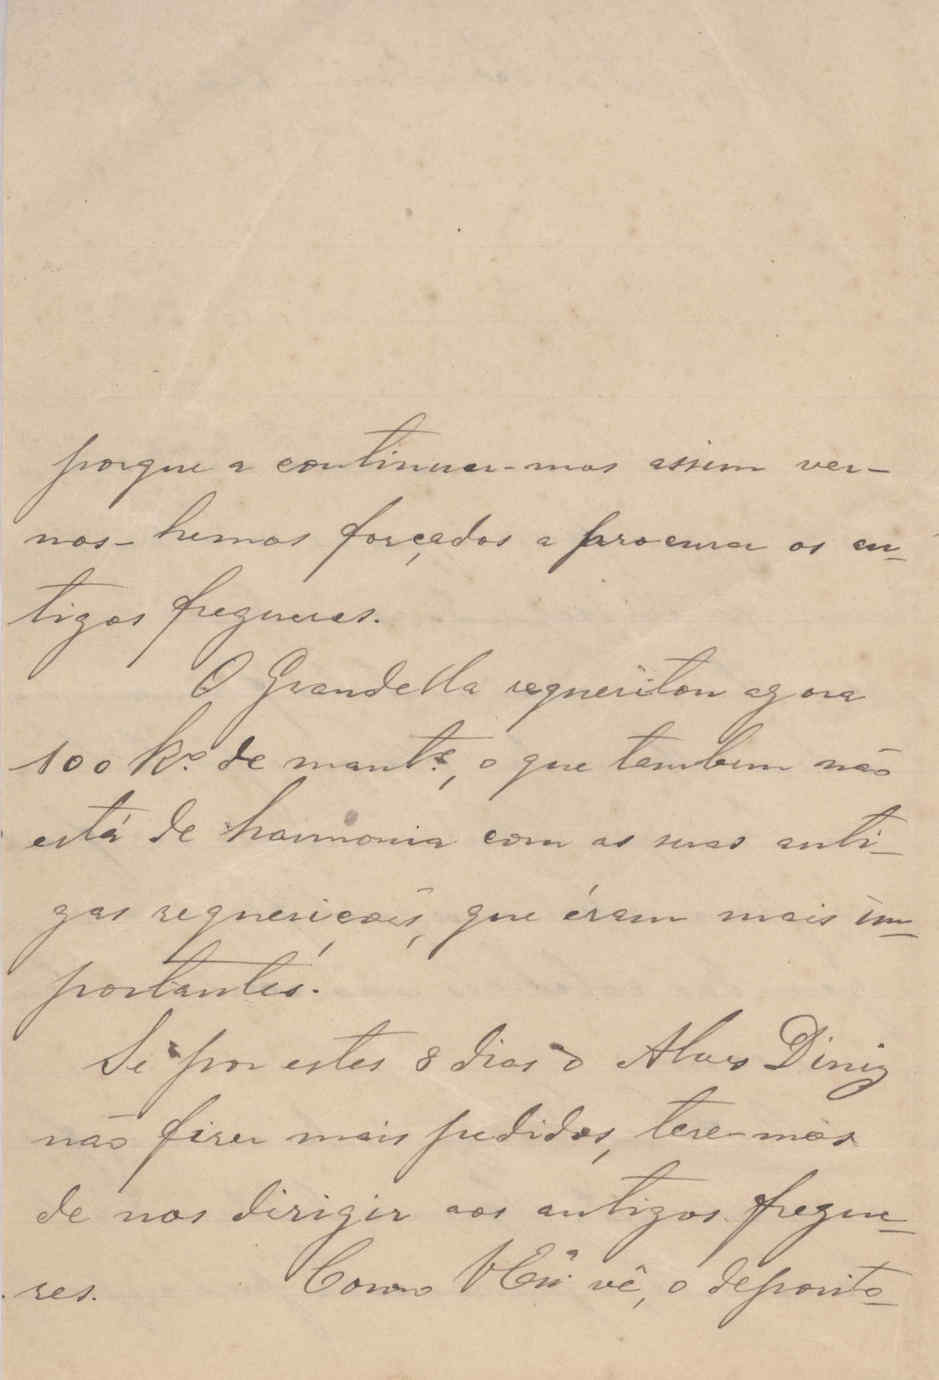 porque a continuar-mos assim ver-
nos-hemos forçados a procurar os an-
tigos freguezes.
O Grandella requesitou agora
100 kos. de mantª, o que tambem não
está de harmonia com as suas anti-
gas requesições, que éram mais im-
portantes.
Se por estes 8 dias o Alves Diniz
não fizer mais pedidos, tere-mos
de nos dirigir aos antigos fregue-
zes. Como V. Exª. vê, o deposito